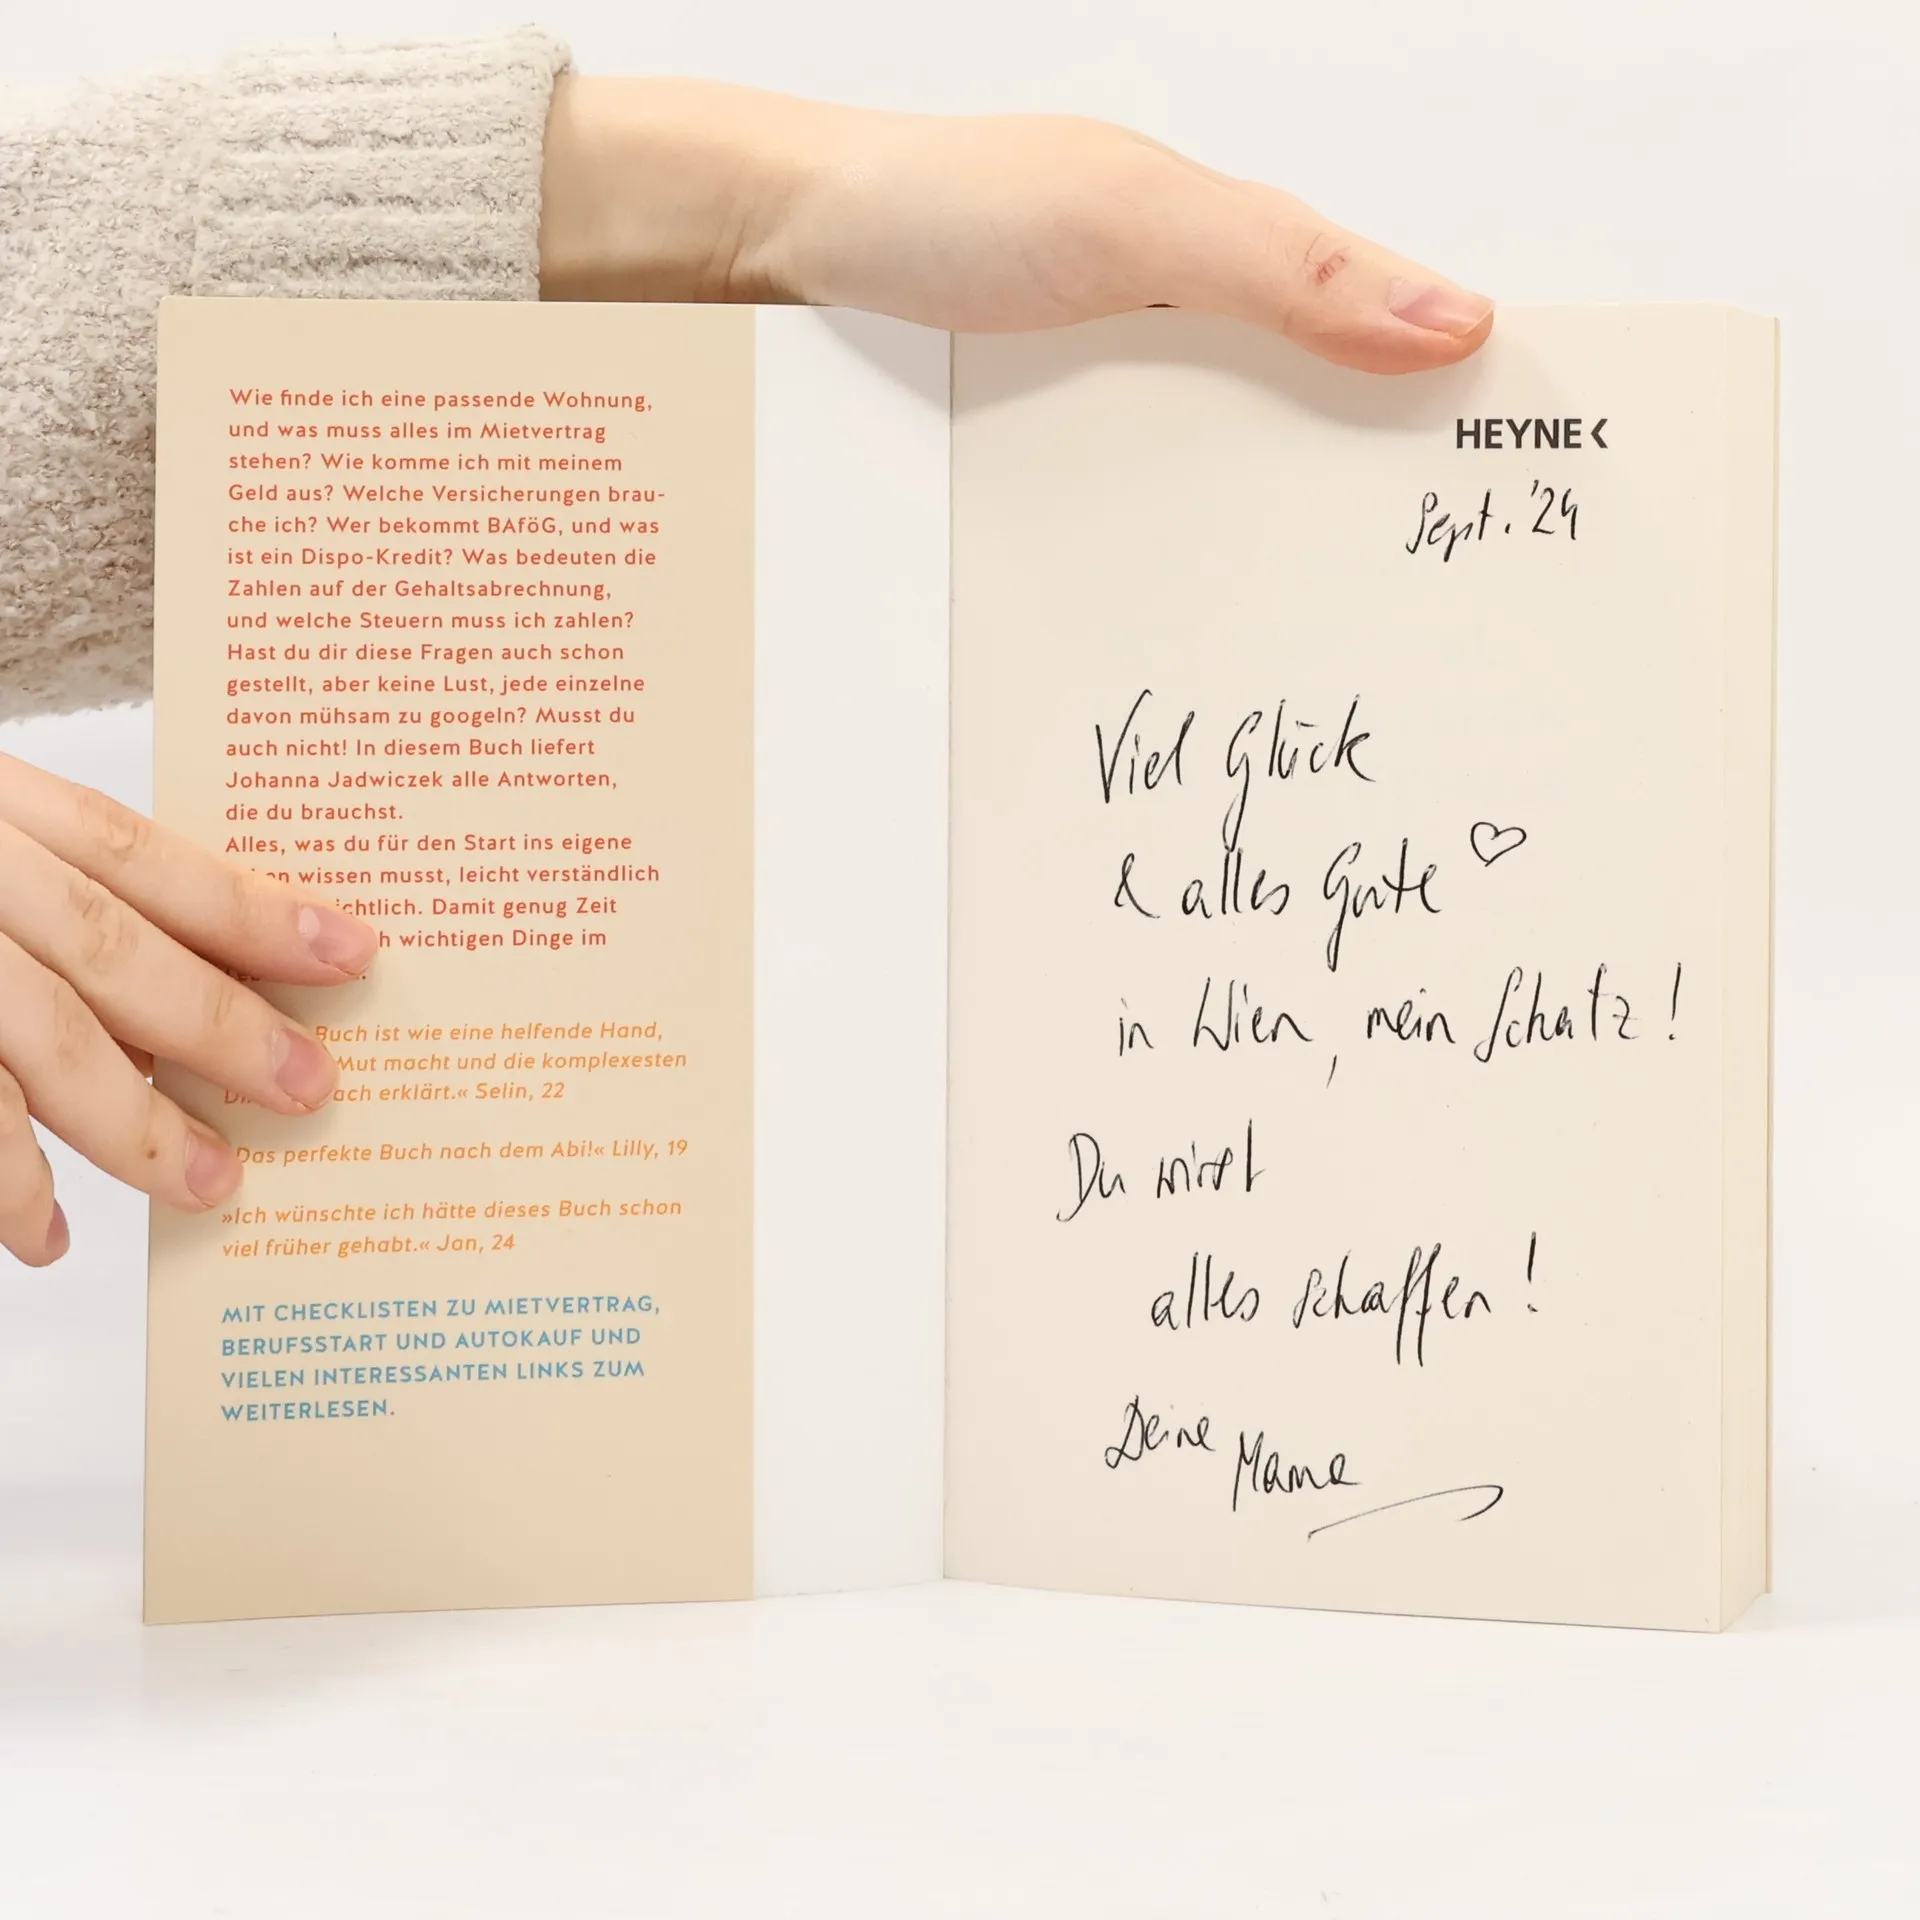 Wie finde ich eine passende Wohnung,
und was muss alles im Mietvertrag
stehen? Wie komme ich mit meinem
Geld aus? Welche Versicherungen brau-
che ich? Wer bekommt BAföG, und was
ist ein Dispo-Kredit? Was bedeuten die
Zahlen auf der Gehaltsabrechnung,
und welche Steuern muss ich zahlen?
Hast du dir diese Fragen auch schon
gestellt, aber keine Lust, jede einzelne
davon mühsam zu googeln? Musst du
auch nicht! In diesem Buch liefert
Johanna Jadwiczek alle Antworten,
die du brauchst.
Alles, was du für den Start ins eigene
wissen musst, leicht verständlich
Damit genug Zeit
wichtigen Dinge im
Buch ist wie eine helfende Hand,
Mut macht und die komplexesten
erklärt.« Selin, 22
Das perfekte Buch nach dem Abi!« Lilly, 19
»Ich wünschte ich hätte dieses Buch schon
viel früher gehabt.« Jan, 24
MIT CHECKLISTEN ZU MIETVERTRAG,
BERUFSSTART UND AUTOKAUF UND
VIELEN INTERESSANTEN LINKS ZUM
WEITERLESEN.
HEYNE<
Sept. '24
Viel Glück
& alles Gute ♡
in Wien, mein Schatz!
Du wirst
alles schaffen!
Deine Mama